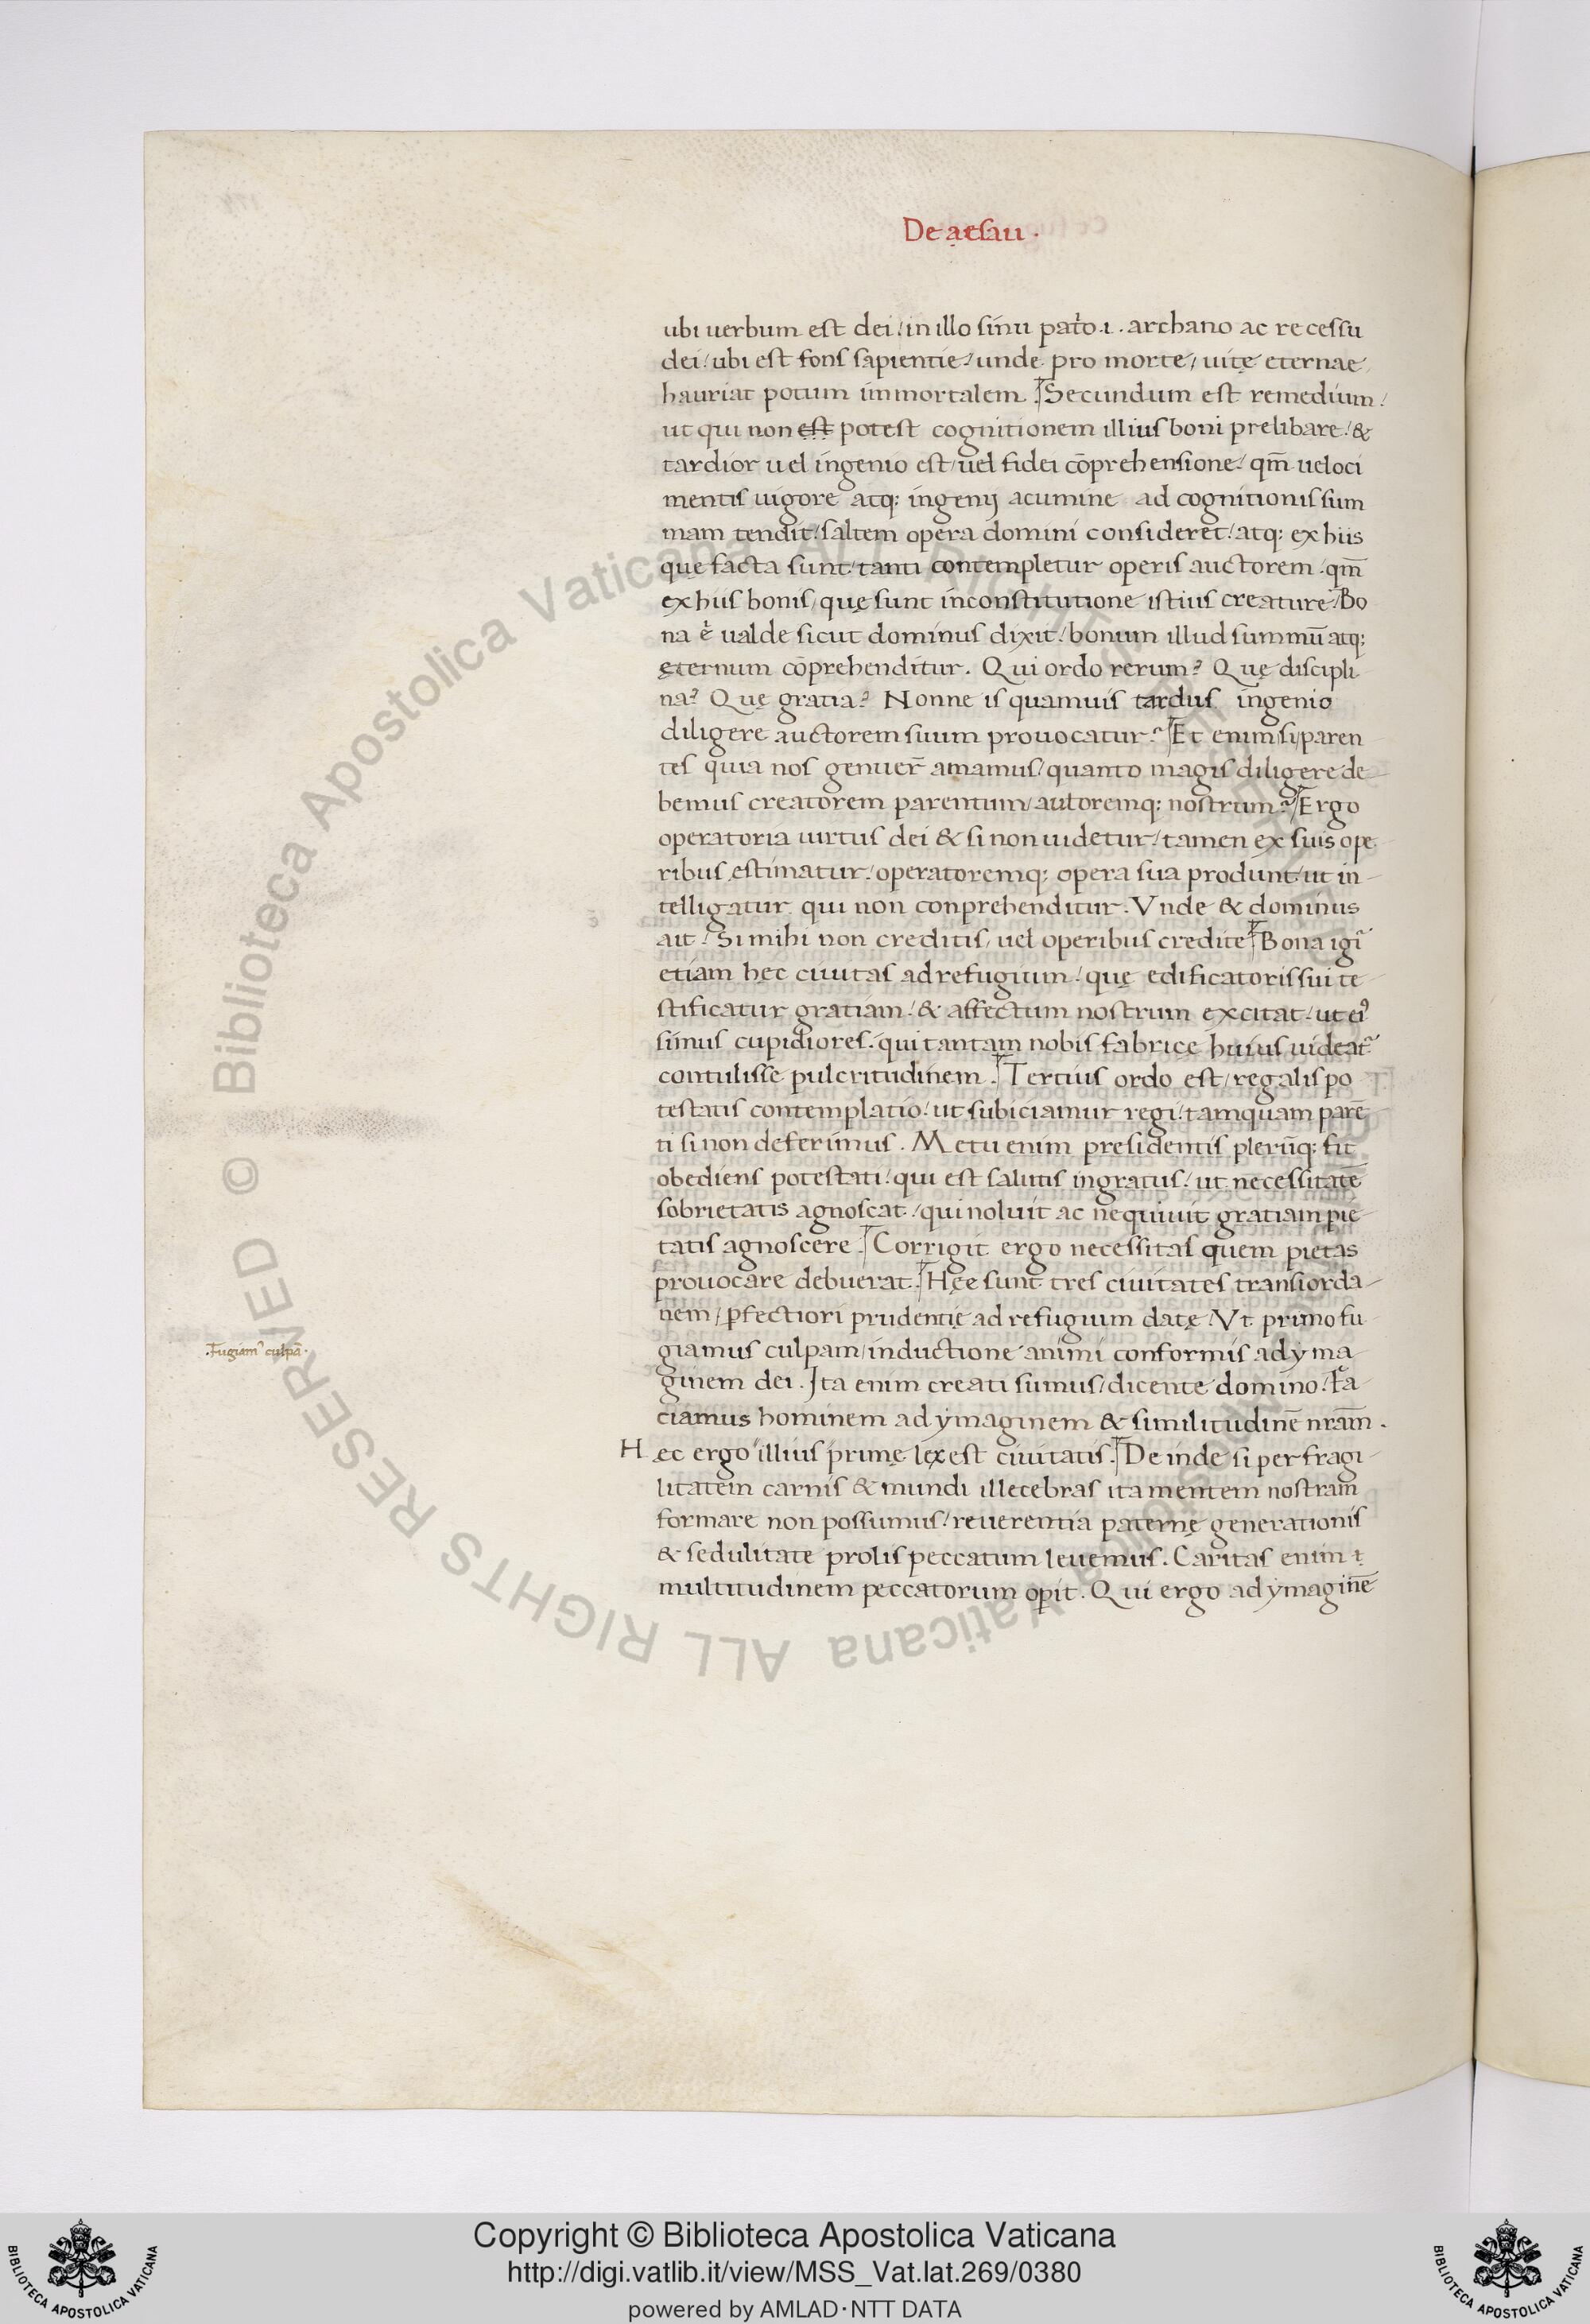 De aesau ·
ubi uerbum est dei / in illo sinu pat̄o .i. archano ac recessu
dei / ubi est fons sapientie / unde pro morte / uitę eternae
hauriat potum immortalem . Secundum est remedium /
ut qui non est potest cognitionem illius boni prelibare / &
tardior uel ingenio est / uel fidei cōprehensione / qm̄ ueloci
mentis uigore atq; ingenij acumine ad cognitionis sum
mam tendit / saltem opera domini consideret / atq; ex hiis
quę facta sunt / tanti contempletur operis auctorem . qm̄
ex hiis bonis / quę sunt inconstitutione istius creature / Bo
na ē ualde sicut dominus dixit / bonum illud summū atq;
ęternum cōprehenditur . Qui ordo rerum ? Quę discipli
na ? Quę gratia ? Nonne is quamuis tardus ingenio
diligere auctorem suum prouocatur ? Et enim / si / paren
tes quia nos genuer̄ amamus / quanto magis diligere de-
bemus creatorem parentum / autoremq; nostrum ? Ergo
operatoria uirtus dei & si non uidetur / tamen ex suis ope
ribus estimatur / operatoremq; opera sua produnt / ut in-
telligatur qui non conprehenditur . Vnde & dominus
ait / Si mihi non creditis / uel operibus credite Bona igi͂
etiam hęc ciuitas ad refugium / quę edificatoris sui te-
stificatur gratiam / & affectum nostrum excitat / ut ei9
simus cupidiores . qui tantam nobis fabricę huius uideat͂
contulisse pulcritudinem . Tertius ordo est / regalis po
testatis contemplatio / ut subiciamur regi / tamquam parē-
ti si non deferimus . Metu enim presidentis plerūq; fit
obediens potestati / qui est salutis ingratus / ut necessitatē
sobrietatis agnoscat / qui noluit ac nequiuit gratiam pie-
tatis agnoscere . Corrigit ergo necessitas quem pietas
prouocare debuerat . Hęe sunt tres ciuitates transiorda-
nem / ꝑfectiori prudentię ad refugium datę . Vt primo fu-
giamus culpam / inductione animi conformis ad yma-
ginem dei . Ita enim creati sumus / dicente domino / Fa-
ciamus hominem ad ymaginem & similitudinē nr̄am .
Hęc ergo illius primę lex est ciuitatis . De inde si per fragi-
litatem carnis & mundi illecebras ita mentem nostram
formare non possumus / reuerentia paternę generationis
& sedulitate prolis peccatum leuemus . Caritas enim
multitudinem peccatorum oꝑit . Qui ergo ad ymaginē
.Fugiam9 culpā.
© Biblioteca Apostolica Vaticana ALL RIGHTS RESERVED
Copyright © Biblioteca Apostolica Vaticana
http://digi.vatlib.it/view/MSS_Vat.lat.269/0380
powered by AMLAD·NTT DATA
BIBLIOTECA APOSTOLICA VATICANA
BIBLIOTECA APOSTOLICA VATICANA